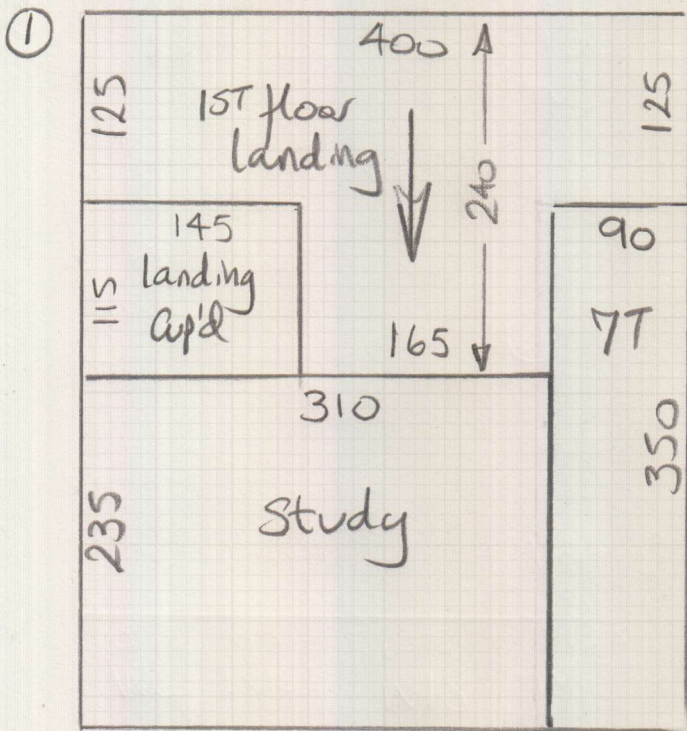 1
400
125
1ST floor
landing
240
125
145
landing
Cup'd
115
165
90
7T
350
310
235
Study